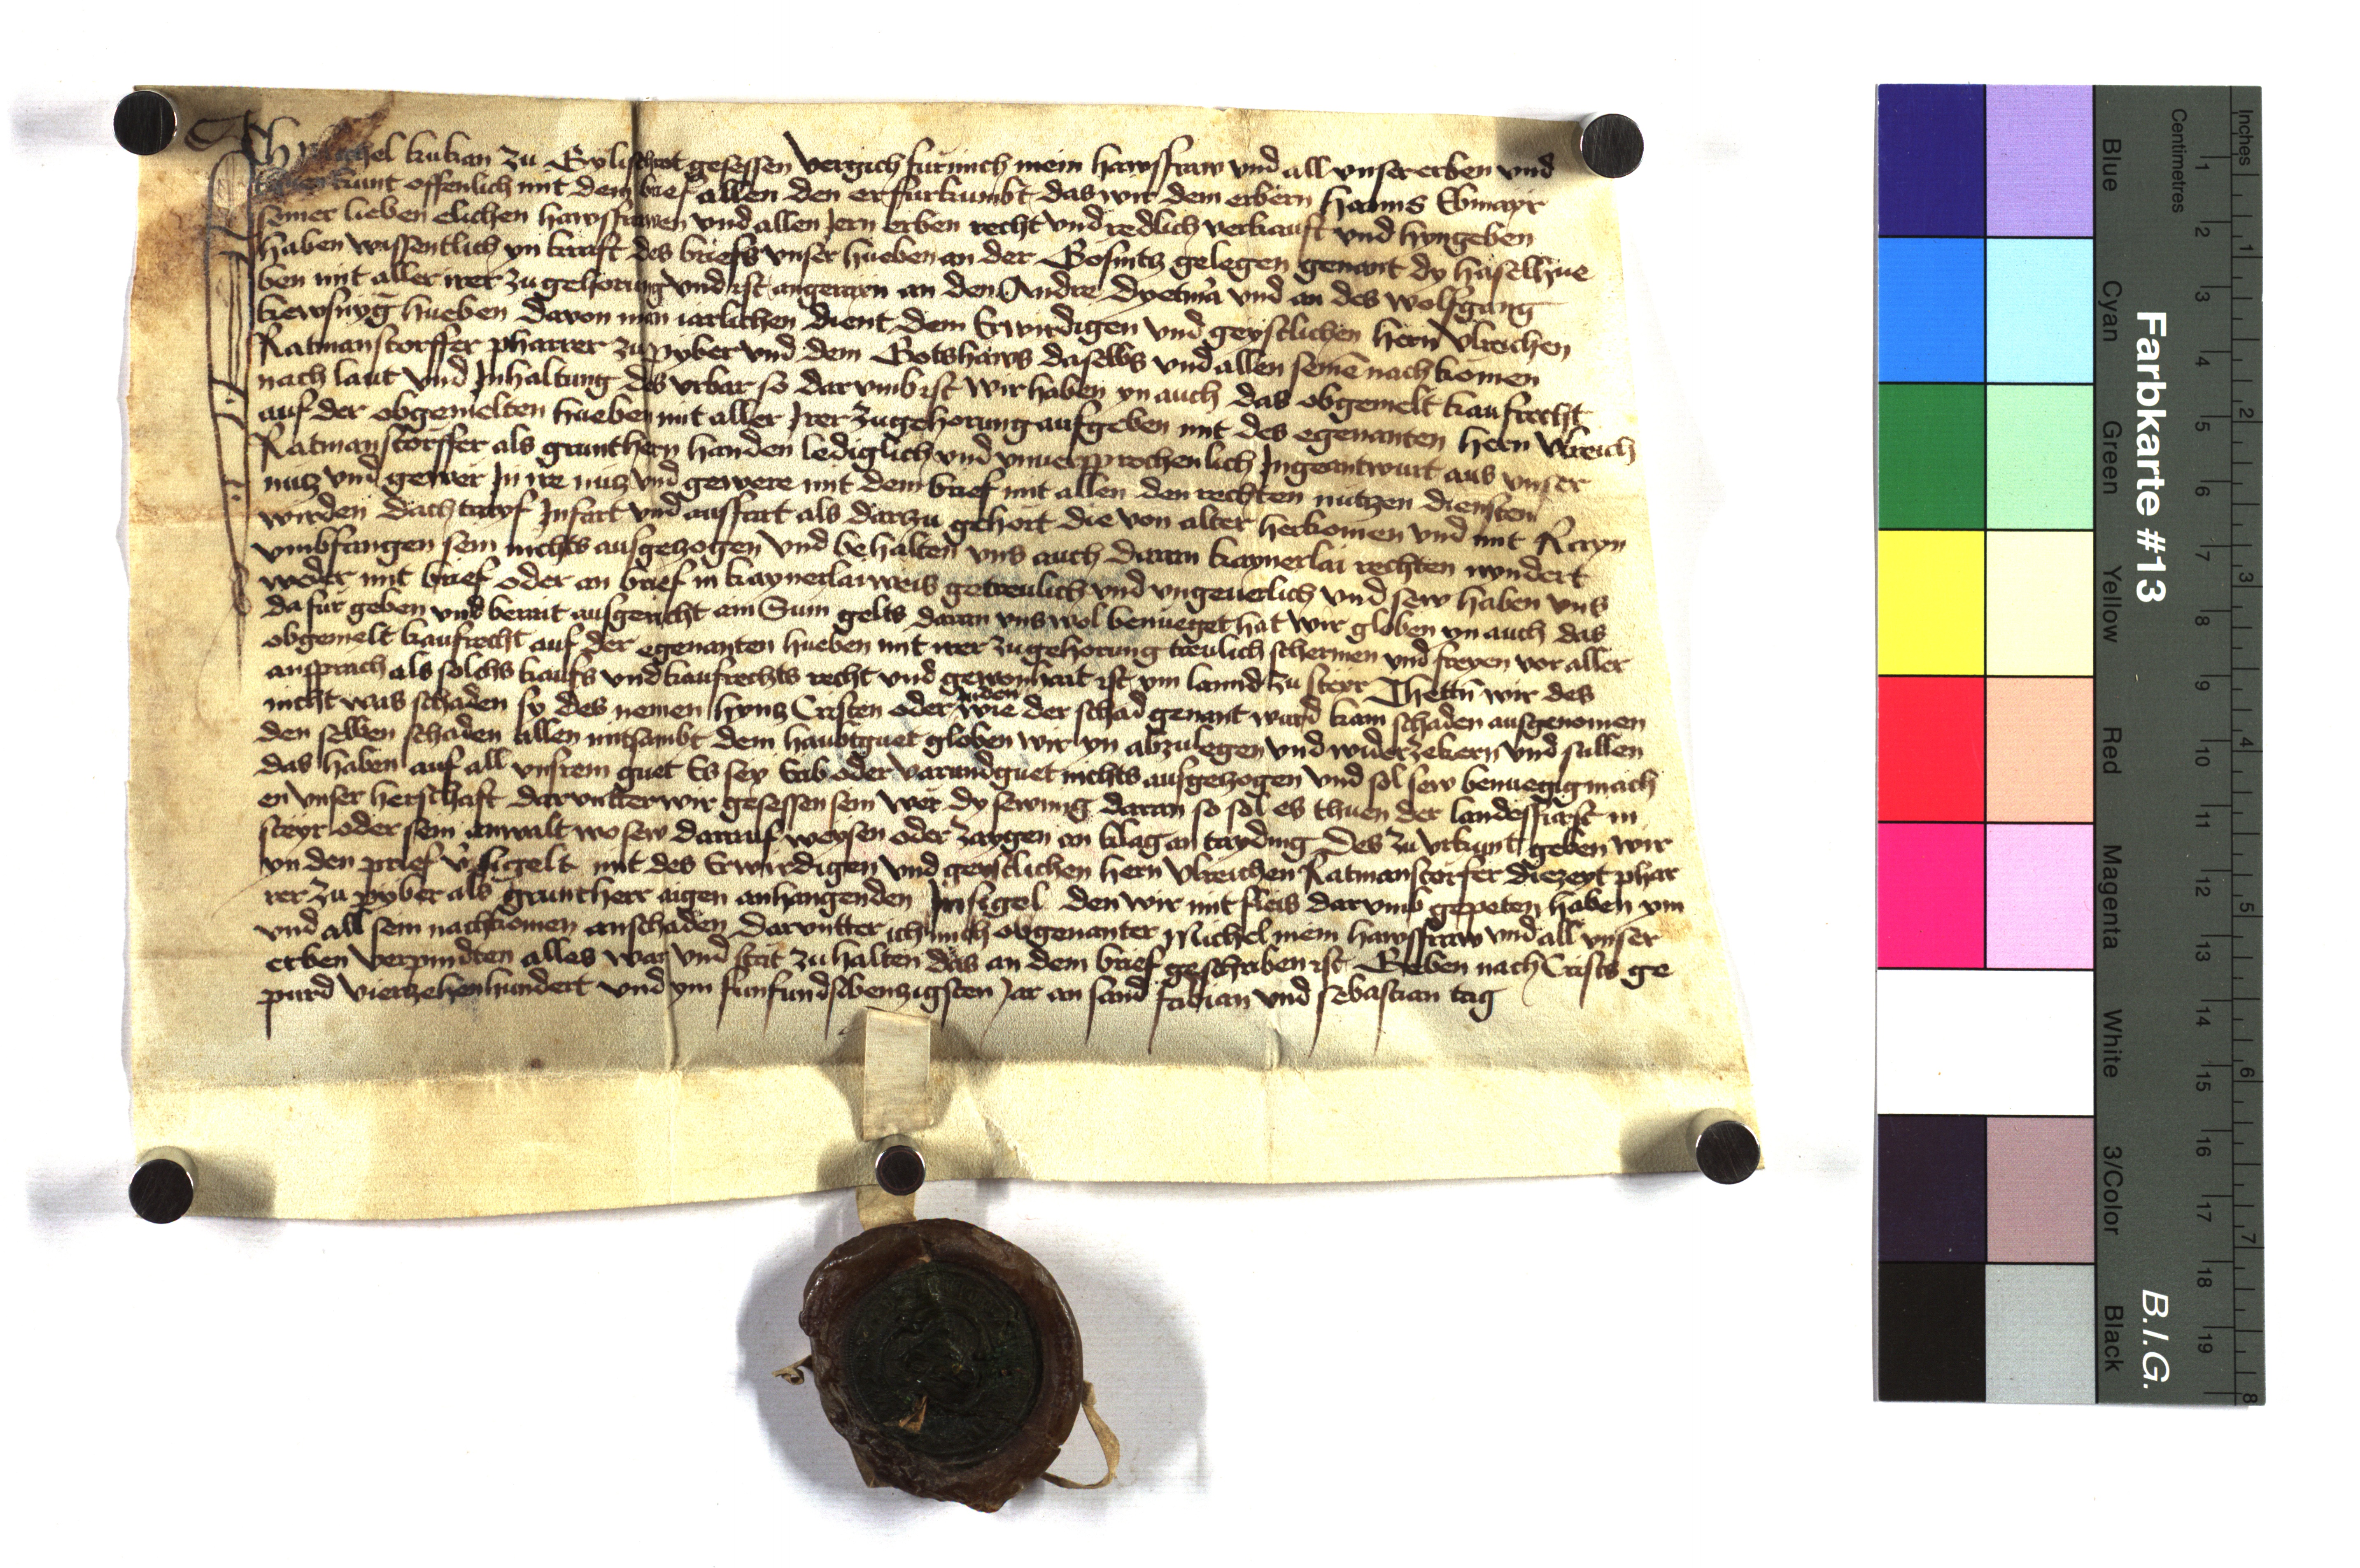 Ich Michel kukan zu Eylischrot gesessen vergich fur mich mein hawsfraw vnd all vnser erben vnd
kunt offenlich mit dem brief allen den er furkumbt das wir dem erbern hanns Ebmayr
seiner lieben elichen hawsfrawen vnd allen Jern erben recht vnd redlich verkauft vnd hyngeben
haben wissentlich yn kraft des briefs vnser hueben an der Gosnitz gelegen genant dy haselhue
ben mit aller irer zugehorung vnd ist angerayn an den Andre dyetmar vnd an des wolfgang
kewsnyg hueben dauon man iarlichen dient dem Erwirdigen vnd geystlichen hern vlreichen
Ratmanstorffer pharrer zu pyber vnd dem Gotshaws daselbs vnd allen seinen nachkomen
nach laut vnd Jnhaltung des vrbar so darumb ist wir haben yn auch das obgemelt kaufrecht
auf der obgemelten hueben mit aller Jrer zugehorung aufgeben mit des egenanten hern vlreich
Ratmanstorffer als grunthern handen lediglich vnd vnuersprochenlich Jngeantwurt aus vnser
nutz vnd gewer Jn ire nutz vnd gewere mit dem brief mit allen den rechten nutzen diensten
wirden dachtrapf Jnfart vnd ausfart als darzu gehort die von alter herkomen vnd mit Rayn
vmbfangen sein nichts ausgezogen vnd behalten vns auch daran kaynerlai rechten nyndert
weder mit brief oder an brief in kaynerlai weis getreulich vnd vngeuerlich vnd sew haben vns
dafur geben vnd berait ausgericht ain Sum gelts daran vns wol benueget hat wir globen yn auch das
obgemelt kaufrecht auf der egenanten hueben mit irer zugehorung treulich schermen vnd freyen vor aller
ansprach als solchs kaufs vnd kaufrechts recht vnd gewonhait ist ym lannd zu steyr Thettn wir des
nicht was schaden sy des nemen hyntz Cristen oder Juden wie der schad genant ward kain schaden ausgenomen
den selben schaden allen mitsambt dem haubtguet globen wir yn abzulegen vnd widerzekern vnd sullen
das haben auf all vnsrem guet Es sey Erb oder varundguet nichts ausgezogen vnd sol sew benuegig mach
en vnser herschaft darunter wir gesessen sein wer dy sewmig daran so sol es thuen der landesfurst in
steyr oder sein anwalt wo sew darauf weysen oder zaygen on klag an tayding Des zu vrkunt geben wir
yn den prief versigelt mit des Erwirdigen vnd geystlichen hern vlreichen Ratmanstorfer diezeyt phar
rer zu pyber als gruntherr aigen anhangenden Jnsigel den wir mit fleis darumb gepeten haben ym
vnd all sein nachkomen anschaden darunter ich mich obgenanter Michel mein hawsfraw vnd all vnser
erben verpindten alles war vnd stat zu halten das an dem brief geschriben ist Geben nach Crists ge
purd vierzehenhundert vnd ym funfundsibenzigsten Jar an sand fabian vnd sebastian tag
Farbkarte #13
B.I.G.
Blue Cyan Green Yellow Red Magenta White 3/Color Black
Centimetres
1 2 3 4 5 6 7 8 9 10 11 12 13 14 15 16 17 18 19
Inches
1 2 3 4 5 6 7 8